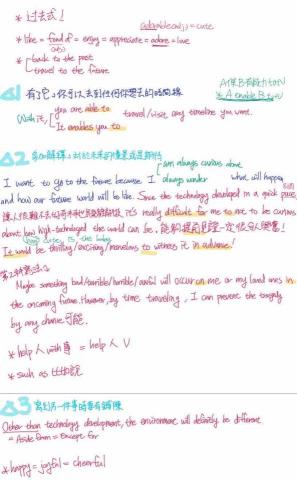 * 過去式!
adorable(adj.) = cute
* like = fond of = enjoy = appreciate = adore = love
(adj.)
* back to the past
travel to the future
A使B有能力做V
* A enable B to V
△1 有了它,你可以去到任何你想去的時間線
With it, you are able to travel/visit any timeline you want.
It enables you to
△2 對於未來的
I am always curious about
I want to go to the future because I always wonder what will happen
and how our future world will be like. Since the technology developed in a quick pace,
it's really difficult for me to be curious
about how high-technologed the world can be. 一定很令人興奮!
It would be thrilling/exciting/marvelous to witness it in advance!
Maybe something bad/terrible/horrible/awful will occur on me or my land ones in
the oncoming future. However, by time traveling, I can prevent the tragedy
by any chance 可能.
* help 人 with 事 = help 人 V
* such as 比如說
△3
Other than technology development, the environment will definitely be different
= Aside from = Except for
* happy = joyful = cheerful